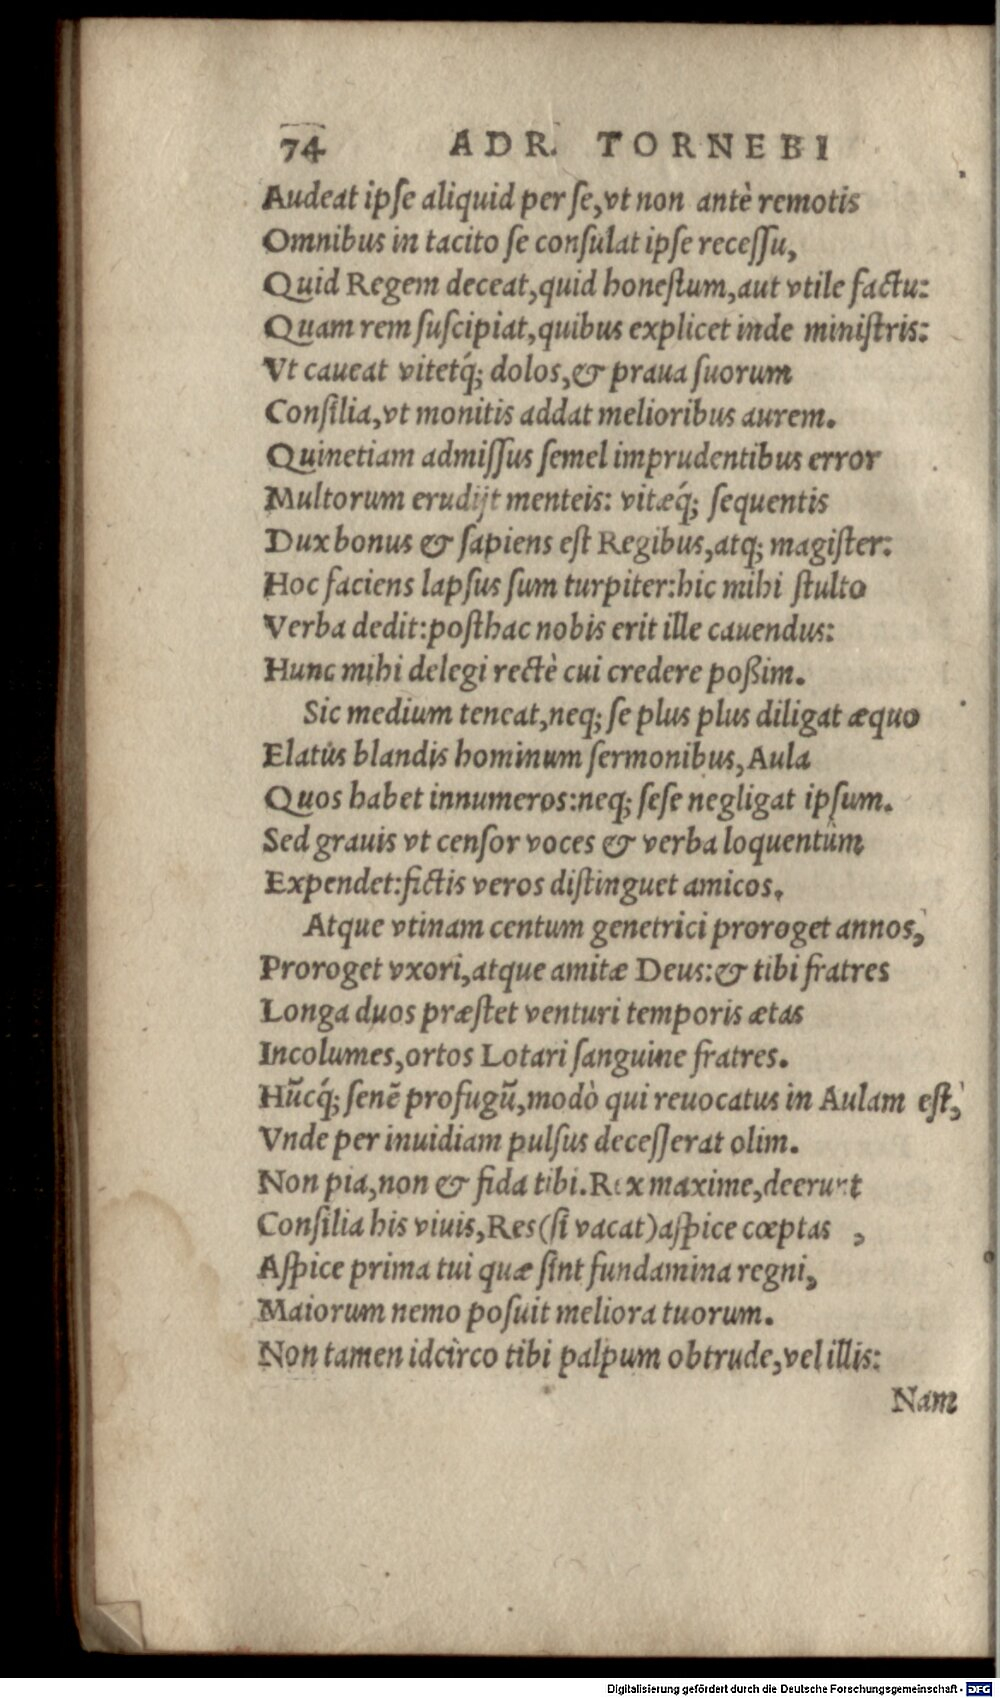 74 ADR. TORNEBI
Audeat ipſe aliquid per ſe, vt non antè remotis
Omnibus in tacito ſe conſulat ipſe receſſu,
Quid Regem deceat, quid honeſtum, aut vtile factu:
Quam rem ſuſcipiat, quibus explicet inde miniſtris:
Vt caueat vitetq́; dolos, & praua ſuorum
Conſilia, vt monitis addat melioribus aurem.
Quinetiam admiſſus ſemel imprudentibus error
Multorum erudijt menteis: vitæq́; ſequentis
Dux bonus & ſapiens eſt Regibus, atq; magiſter:
Hoc faciens lapſus ſum turpiter: hic mihi ſtulto
Verba dedit: poſthac nobis erit ille cauendus:
Hunc mihi delegi rectè cui credere poßim.
Sic medium teneat, neq; ſe plus plus diligat æquo
Elatus blandis hominum ſermonibus, Aula
Quos habet innumeros: neq; ſeſe negligat ipſum.
Sed grauis vt cenſor voces & verba loquentûm
Expendet: fictis veros diſtinguet amicos.
Atque vtinam centum genetrici proroget annos,
Proroget vxori, atque amitæ Deus: & tibi fratres
Longa duos præſtet venturi temporis ætas
Incolumes, ortos Lotari ſanguine fratres.
Hũcq́; ſenẽ profugũ, modò qui reuocatus in Aulam eſt,
Vnde per inuidiam pulſus deceſſerat olim.
Non pia, non & fida tibi. Rex maxime, deerunt
Conſilia his viuis, Res (ſi vacat) aſpice cœptas ,
Aſpice prima tui quæ ſint fundamina regni,
Maiorum nemo poſuit meliora tuorum.
Non tamen idcirco tibi palpum obtrude, vel illis:
Nam
Digitalisierung gefördert durch die Deutsche Forschungsgemeinschaft - DFG